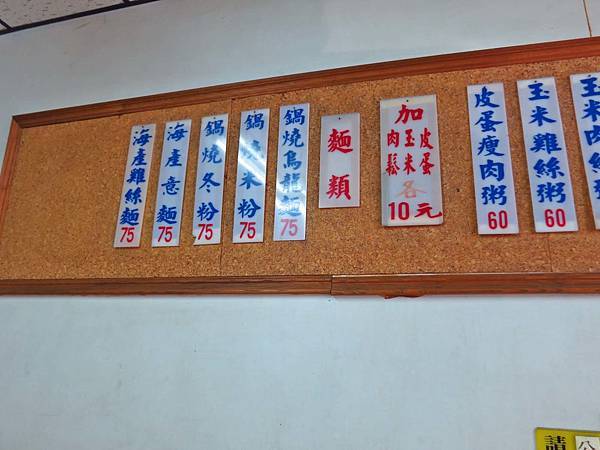 玉米肉
玉米雞絲粥
60
皮蛋瘦肉粥
60
加
皮蛋
玉米
肉鬆
各
10元
麵類
鍋燒烏龍麵
75
鍋米粉
75
鍋燒冬粉
75
海產意麵
75
海產雞絲麵
75
請
公